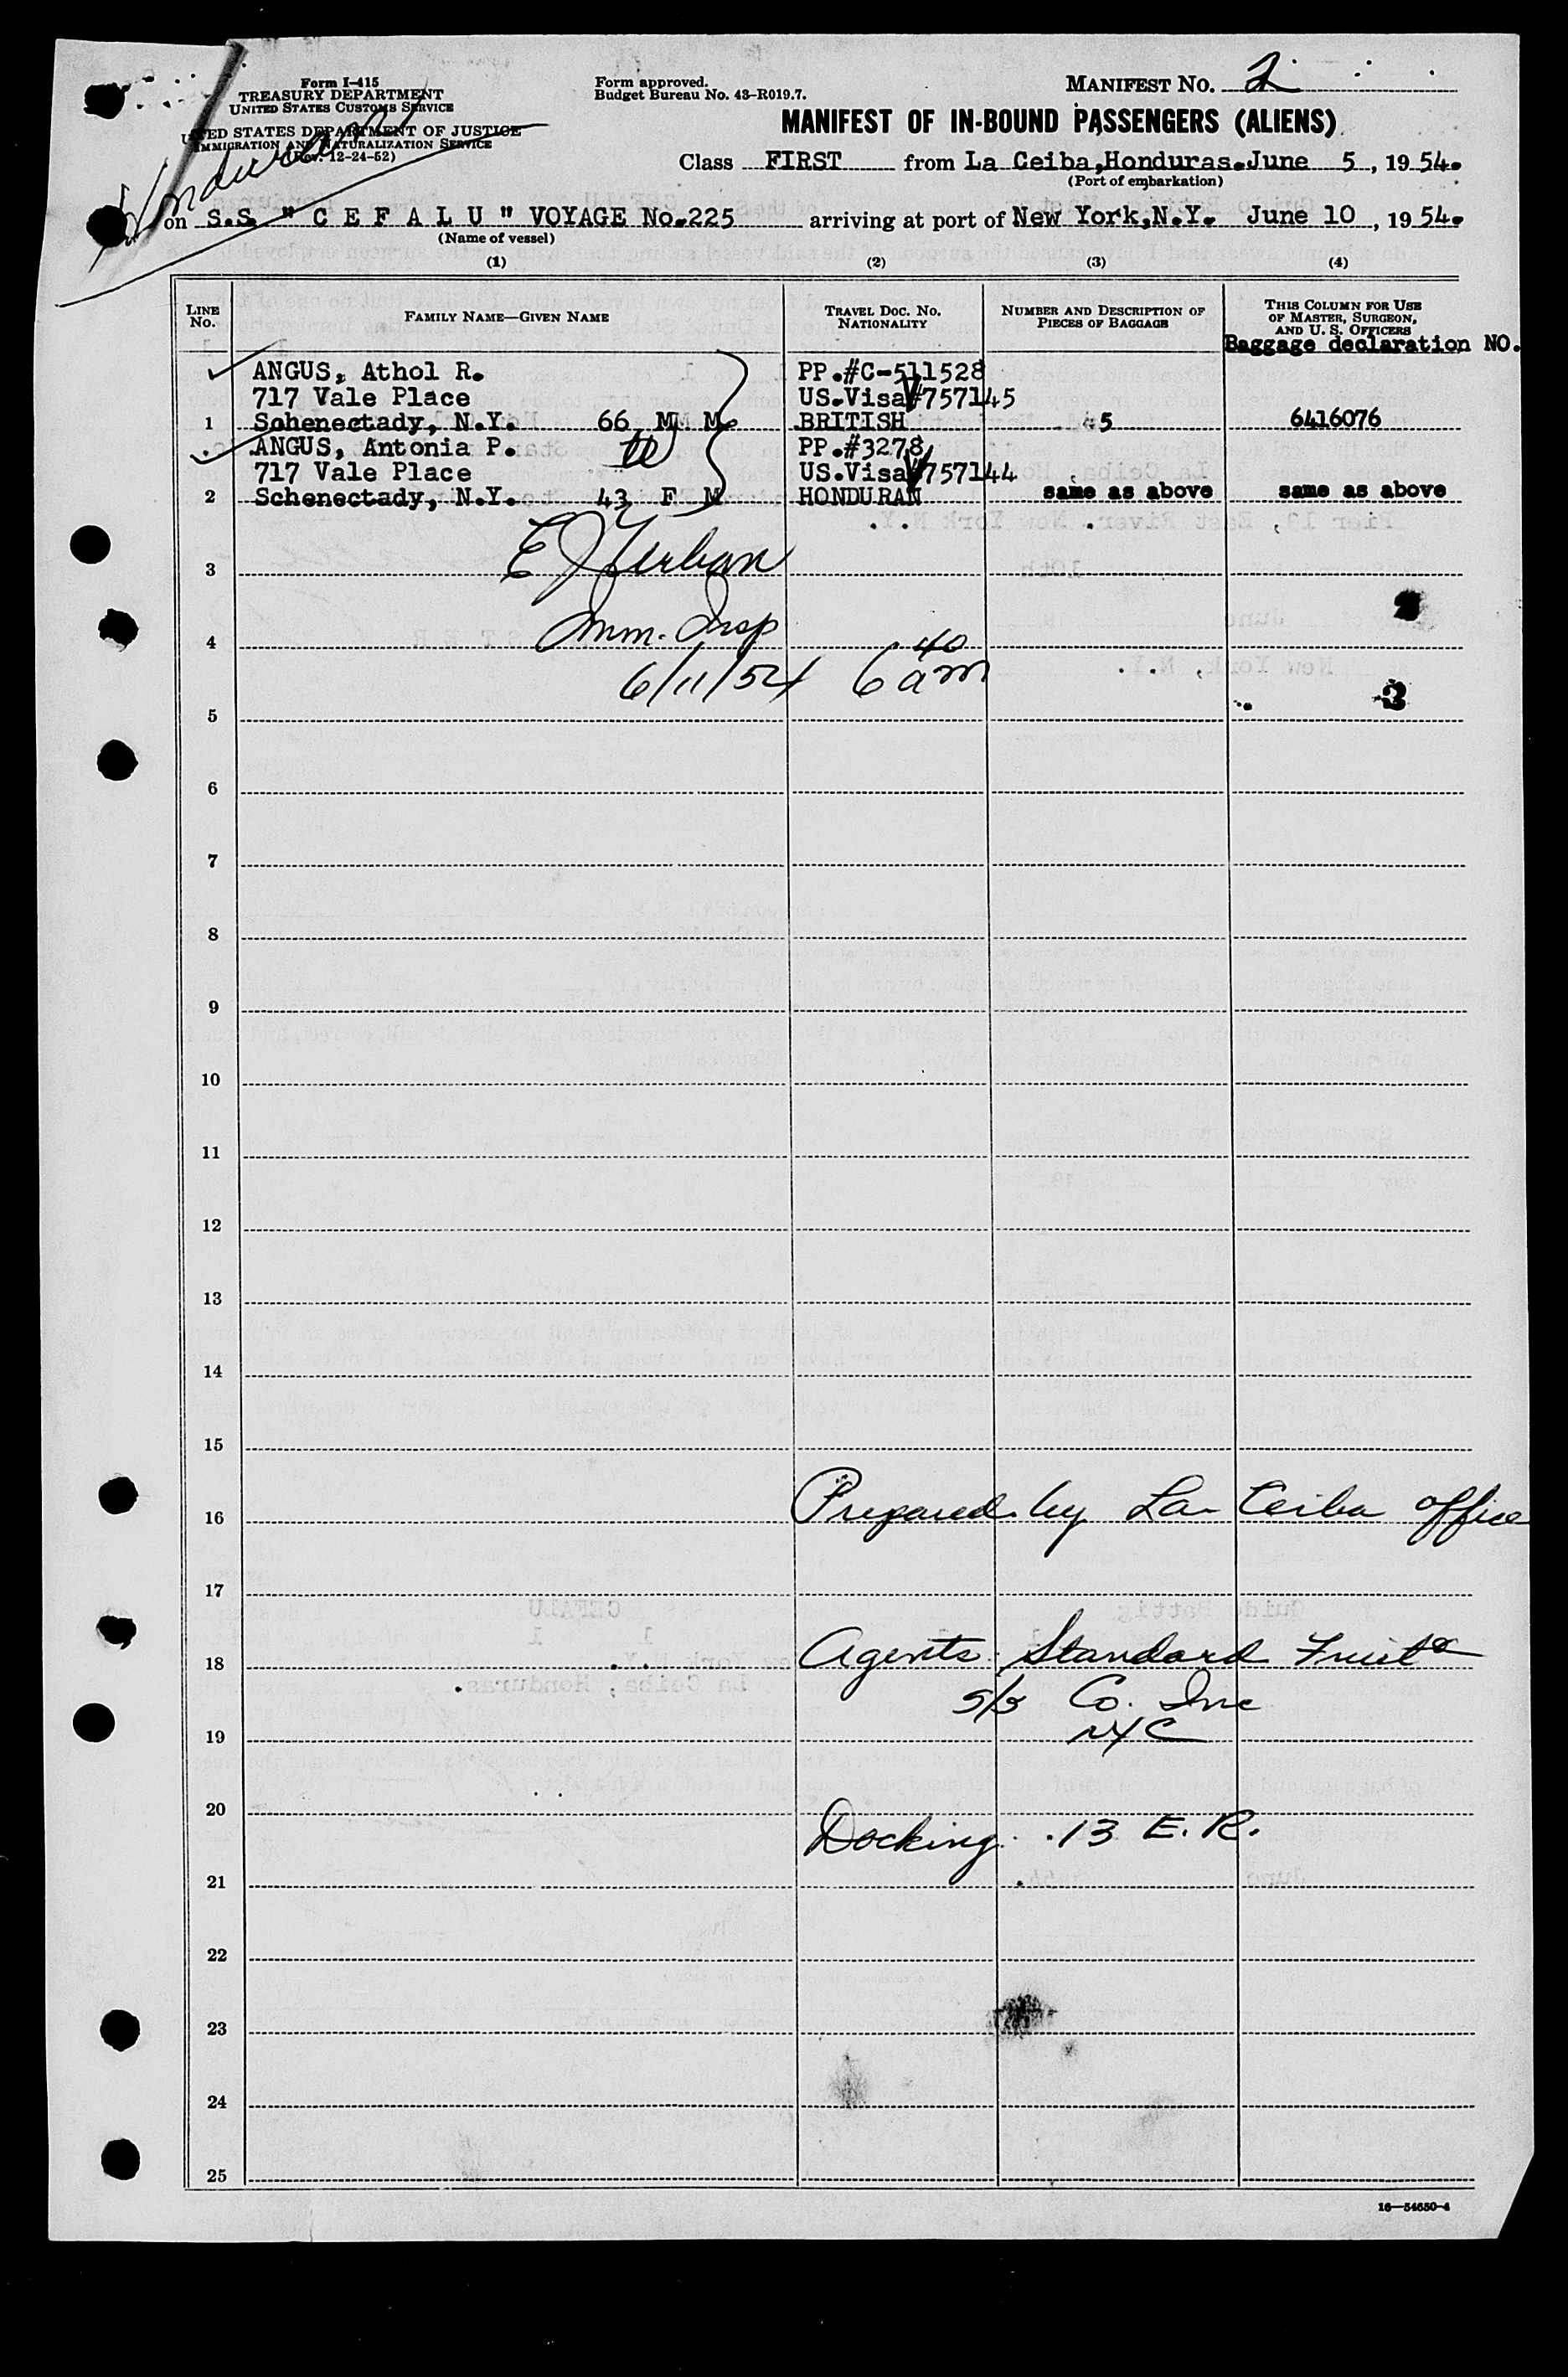 Form I-415
TREASURY DEPARTMENT
UNITED STATES CUSTOMS SERVICE
UNITED STATES DEPARTMENT OF JUSTICE
IMMIGRATION AND NATURALIZATION SERVICE
(Rev. 12-24-52)
Form approved.
Budget Bureau No. 43-R019.7.
MANIFEST NO. 2
MANIFEST OF IN-BOUND PASSENGERS (ALIENS)
Class FIRST from La Ceiba,Honduras.June 5, 1954.
(Port of embarkation)
on S.S. " C E F A L U " VOYAGE No.225 arriving at port of New York,N.Y. June 10, 1954.
(Name of vessel)
(1) (2) (3) (4)
LINE NO.
FAMILY NAME—GIVEN NAME
TRAVEL DOC. NO. NATIONALITY
NUMBER AND DESCRIPTION OF PIECES OF BAGGAGE
THIS COLUMN FOR USE OF MASTER, SURGEON, AND U. S. OFFICERS
Baggage declaration NO.
ANGUS, Athol R. PP.#C-511528
717 Vale Place US.Visa#757145
1 Schenectady, N.Y. 66 M M BRITISH 5 6416076
ANGUS, Antonia P. PP.#3278
717 Vale Place US.Visa#757144
2 Schenectady, N.Y. 43 F M HONDURAN same as above same as above
3
Imm. Insp
4
6/11/54 6 40 am
5 3
6
7
8
9
10
11
12
13
14
15
16 Prepared by La Ceiba office
17
18 Agents Standard Fruit &
S/S Co. Inc
19 NYC
20
Docking 13 E. R.
21
22
23
24
25
16—54650-4